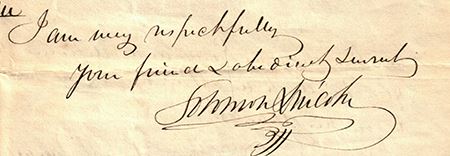 I am very respectfully
Your friend & obedient Servant
Solomon Lincoln